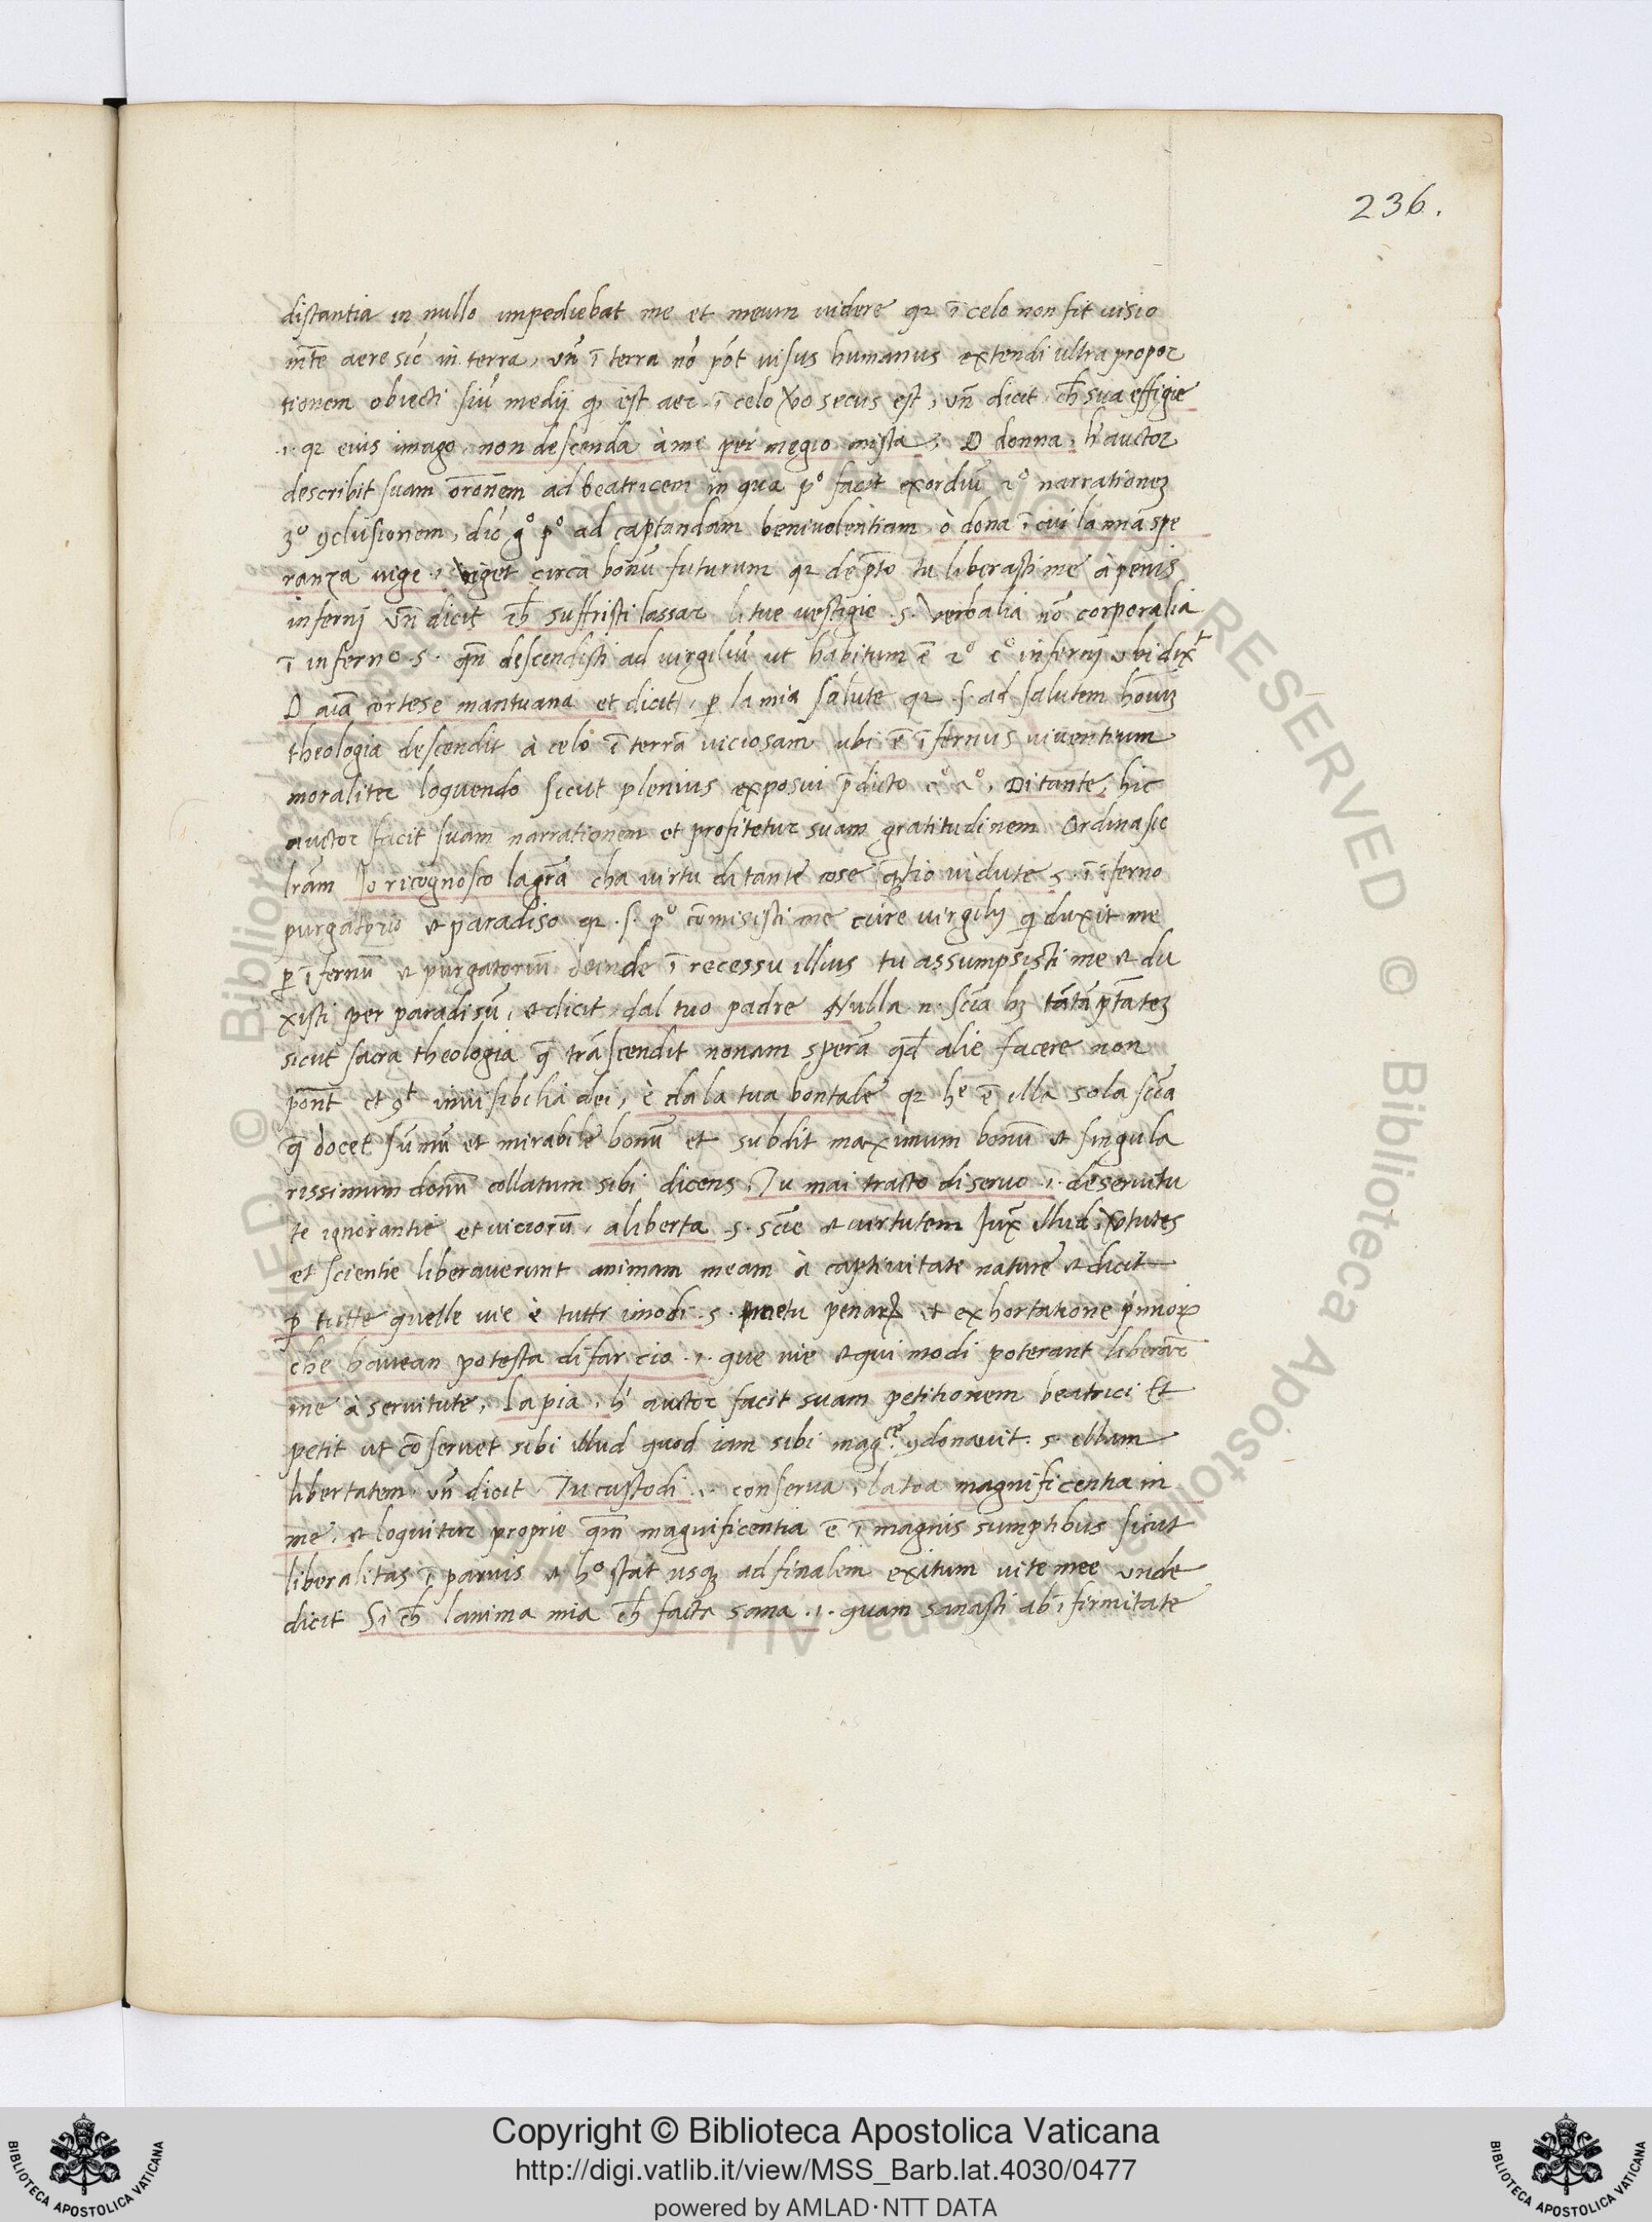 236.
distantia in nullo impediebat me et meum videre qz ī celo non fit visio
mte aere sić in terra, vn̄ ī terra nō pōt visus humanus extendi ultra propor
tionem obiecti siū medij qd est aer. ī celo vo secus est, vn̄ dicit ch̄ sua effigie
.i. qz eius imago non descenda à me per megio mista, O donna. h̄ auctor
describit suam oronem ad beatricem in qua p° facit exordiū 2° narrationez
3° 9clusionem, dić g° p° ad captandam benivolentiam ò dona ī cui la mia spe
ranza vige .i. viget circa bonū futurum qz de pnto tu liberasti me à penis
infernj vn̄ dicit ch̄ suffristi lassar li tue vestigie .s. verbalia nō corporalia
ī inferno .s. qn̄ descendisti ad virgiliū ut habitum ē 2° c° infernj ubi dixt
O aīa cortese mantuana et dicit, p la mia salute qz .s. ad salutem hōuz
theologia descendit à celo ī terrā viciosam ubi ē īfernus viventium
moraliter loquendo sicut plenius exposui pdicto c° 2°. Di tante, hic
auctor facit suam narrationem et profitetur suam gratitudinem Ordina sic
lrām Io ricognosco la grā cha virtu di tante cose qtio vidute .s. ī iferno
purgatorio et paradiso qz .s. p° cōmisisti me cure virgilij qui duxit me
p īfernū et purgatoriū deinde ī recessu illius tu assumpsisti me et du
xisti per paradisū, et dicit dal tuo padre Nulla .n. scīa hz tātā ptātez
sicut sacra theologia q̄ trāscendit nonam sperā qd alie facere non
pōnt et 9t invisibilia dei, è da la tua bontade qz he ē illa sola scīa
q̄ docet sūmū et mirabile bonū et subdit maximum bonū et singula
rissimum donū collatum sibi dicens Tu mai tracto di servo .i. de servitu
te ignorantie et viciorū, a liberta .s. scīe et virtutem Iux illud, Vtutes
et scientie liberaverunt animam meam à captivitate nature et dicit
p tutte quelle vie è tutti i modi .s. metu penarz et exhortatione pmiorz
che havean potesta di far cio .i. que vie et qui modi poterant liberare
me à servitute, La pia. h̄ auctor facit suam petitionem beatrici Et
petit ut cōservet sibi illud quod iam sibi magce 9donavit .s. illam
libertatem vn̄ dicit Tu custodi .i. conserva, la toa magnificentia in
me, et loquitur proprie qm magnificentia ē ī magnis sumptibus sicut
liberalitas ī parvis et h° stat usqz ad finalem exitum vite mee unde
dicit Si ch̄ lanima mia ch̄ facta sana .i. quam sanasti ab īfirmitate
Copyright © Biblioteca Apostolica Vaticana
http://digi.vatlib.it/view/MSS_Barb.lat.4030/0477
powered by AMLAD·NTT DATA